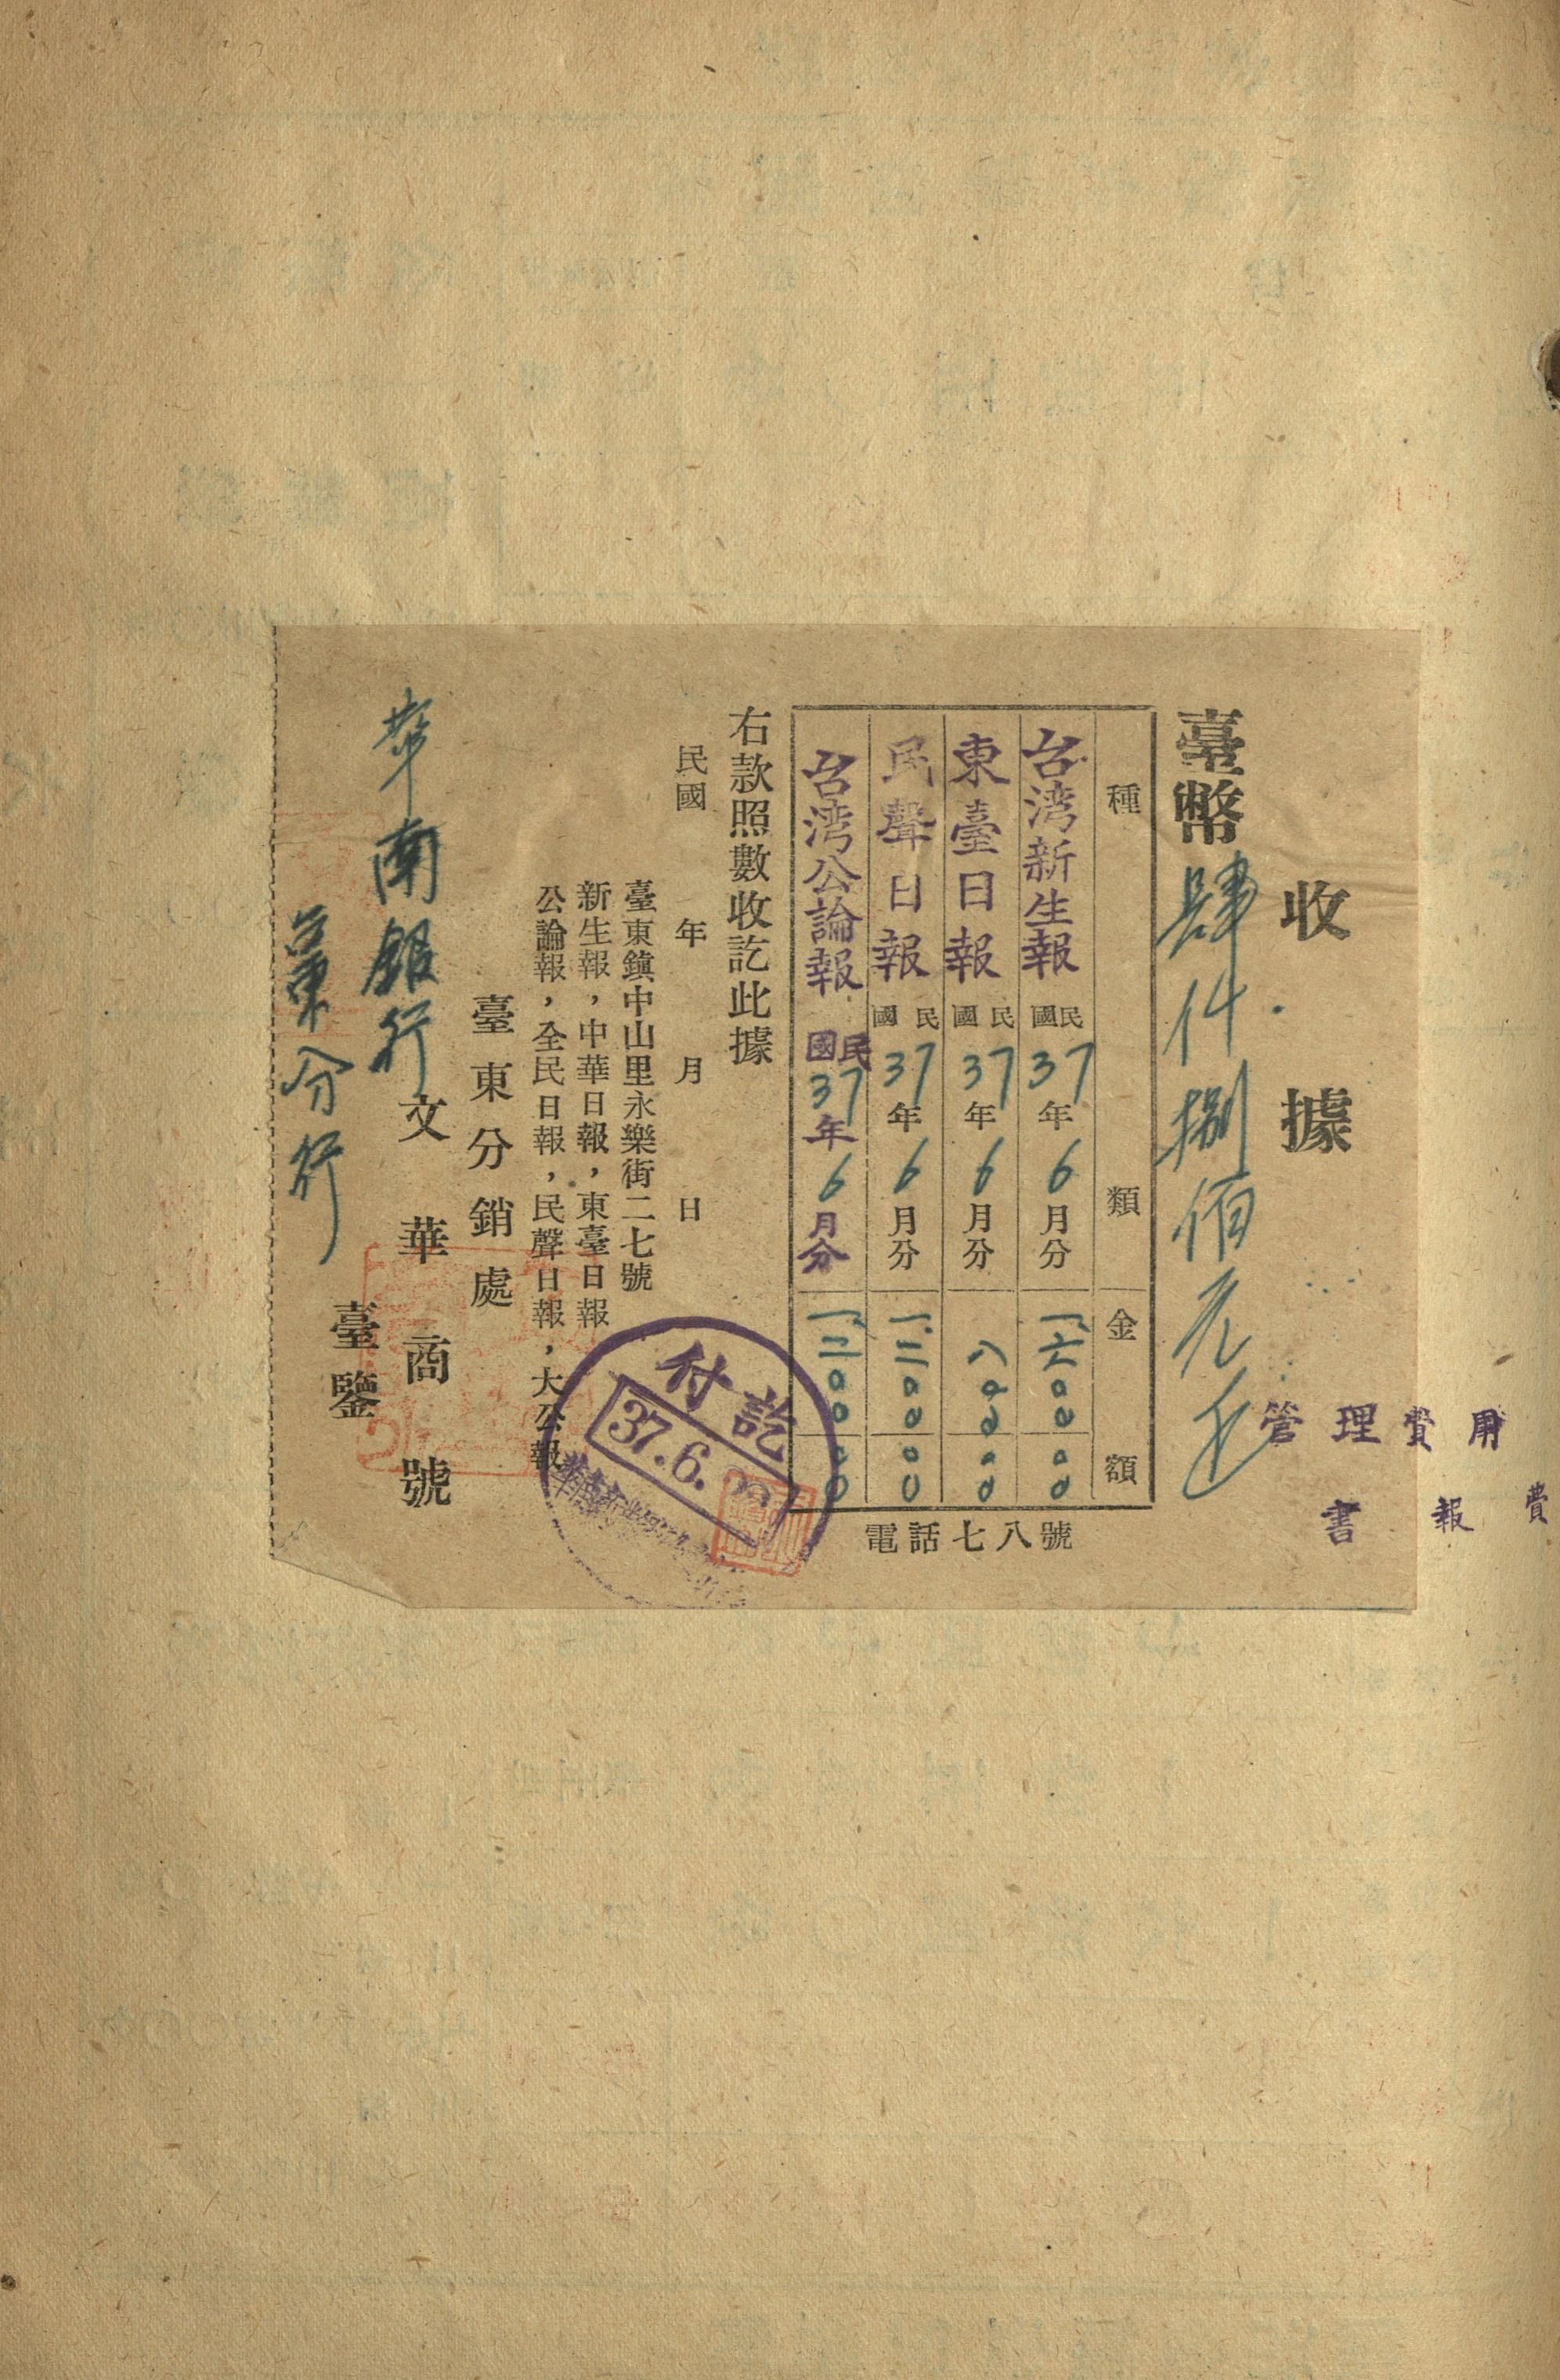 收據
臺幣肆仟捌佰元正
種類 金額
台湾新生報 民國37年6月分 一六〇〇〇〇
東臺日報 民國37年6月分 八〇〇〇〇
民聲日報 民國37年6月分 一二〇〇〇〇
台湾公論報 民國37年6月分 一二〇〇〇〇
電話七八號
右款照數收訖此據
民國 年 月 日
臺東鎮中山里永樂街二七號
新生報，中華日報，東臺日報
公論報，全民日報，民聲日報，大公報
臺東分銷處
文華商號
華南銀行
臺東分行
臺鑒
付訖
37.6.
管理費用
書報費